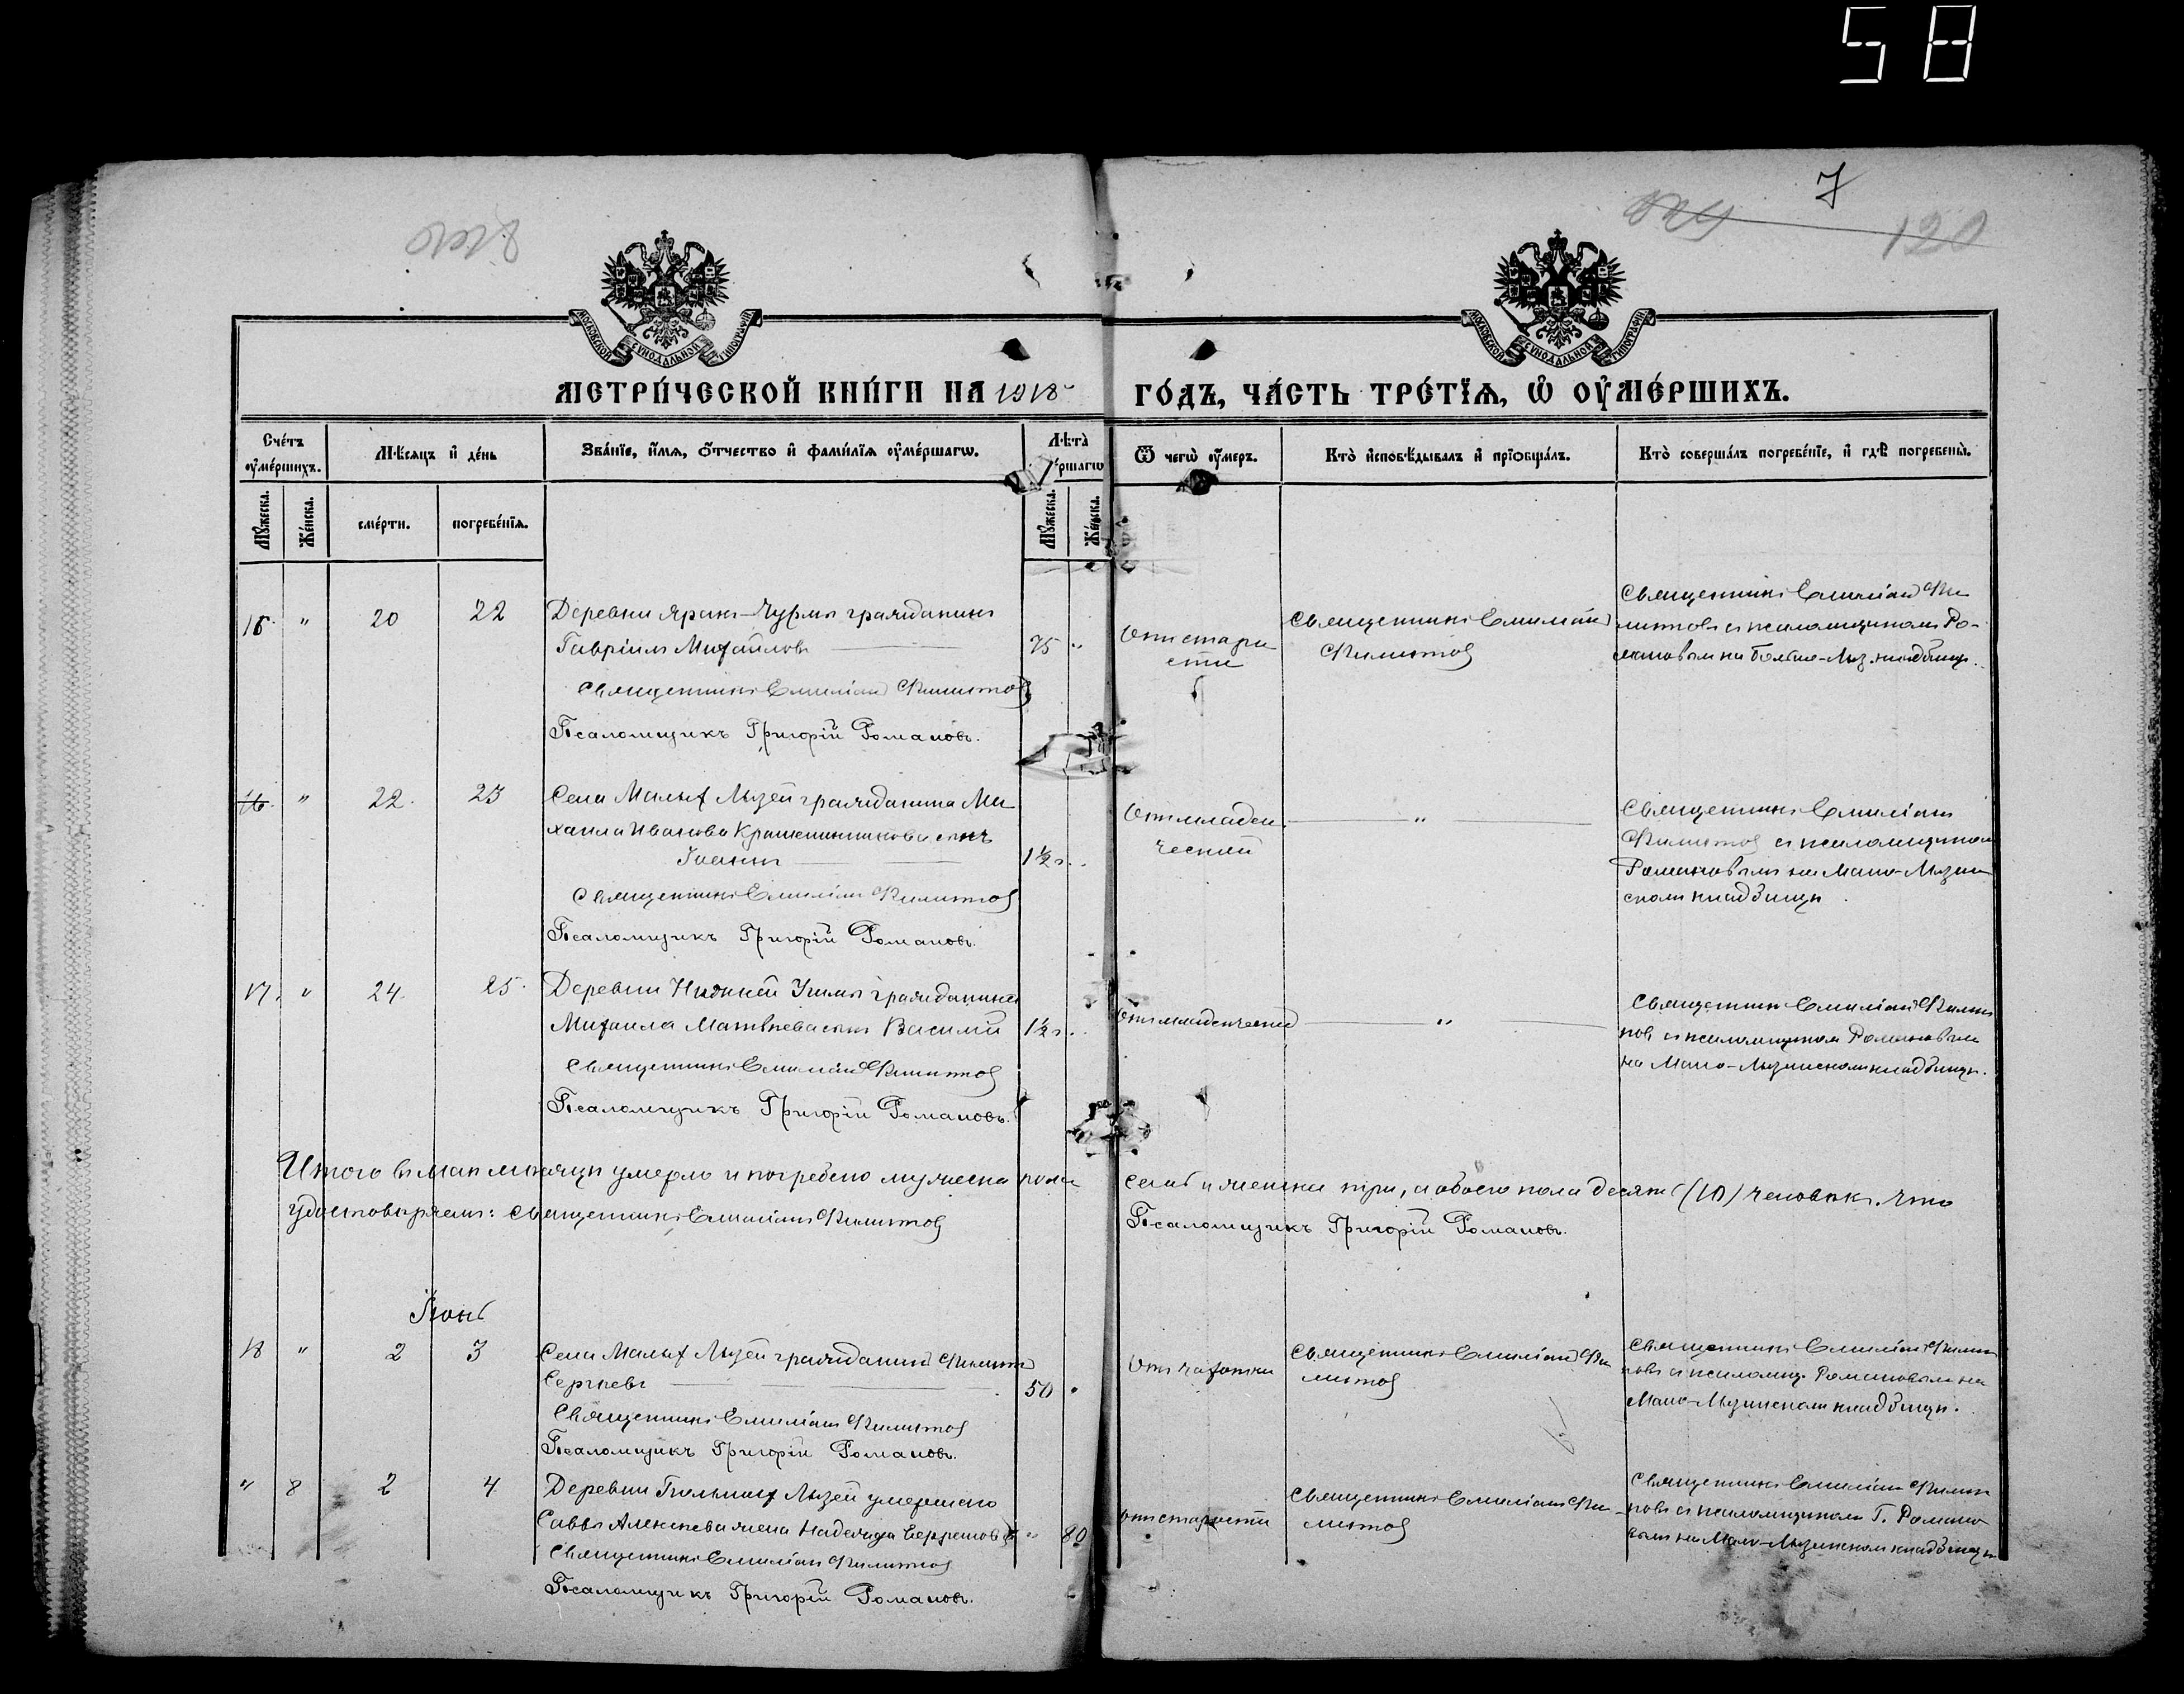 58
7
120
МОСКОВСКОЙ СУНОДАЛЬНОЙ ТИПОГРАФІИ
МОСКОВСКОЙ СУНОДАЛЬНОЙ ТИПОГРАФІИ
МЕТРИ́ЧЕСКОЙ КНИ́ГИ НА 1918 ГО́ДЪ, ЧА́СТЬ ТРЕ́ТІѦ, Ѡ ОУ҆МЕ́РШИХЪ.
Сче́тъ оу҆ме́ршихъ.
Мѣ́сяцъ и҆ де́нь
Зва́нїе, и҆́мя, ѻ҆́тчество и҆ фами́лїя оу҆ме́ршагѡ.
Лѣ́та
Ѿ чегѡ̀ оу҆́меръ.
Кто̀ и҆сповѣ́дывалъ и҆ прїѡбща́лъ.
Кто̀ соверша́лъ погребе́нїе, и҆ гдѣ̀ погребены̀.
Мꙋ́жеска.
Же́нска.
сме́рти.
погребе́нїя.
Мꙋ́жеска.
Же́нска.
15. " 20 22 Деревни гражданинъ
Гавріилъ Михайловъ 75 "
Священникъ Емиліанъ Филиптов
Псаломщикъ Григорій Романовъ.
Отъ старости
Священникъ Емиліанъ Филиптов
Священникъ Емиліанъ Филиптовъ съ псаломщикомъ Романовым на кладбищѣ.
16. " 22. 23 Села Малыхъ Лызей гражданина Михаила Иванова Крашенинникова сынъ
Іоаннъ 1½ г.
Священникъ Емиліанъ Филиптов
Псаломщикъ Григорій Романовъ.
Отъ младенческой
"
Священникъ Емиліанъ
Филиптов съ псаломщикомъ
Романовымъ на Мало-Лызинскомъ кладбищѣ.
17. " 24. 25. Деревни Нижней гражданина
Михаила Матвѣева сынъ Василій 1½ г.
Священникъ Емиліанъ Филиптов
Псаломщикъ Григорій Романовъ.
Отъ младенческой
"
Священникъ Емиліанъ Филиптовъ съ псаломщикомъ Романовымъ
на Мало-Лызинскомъ кладбищѣ.
Итого въ маѣ мѣсяцѣ умерло и погребено мужеска пола семь и женска три, а обоего пола десять (10) человѣкъ. Что
удостовѣряемъ: Священникъ Емиліанъ Филиптов Псаломщикъ Григорій Романовъ.
Іюнь
18 " 2 3 Села Малыхъ Лызей гражданинъ Филиппъ
Сергѣевъ 50 "
Священникъ Емиліанъ Филиптов
Псаломщикъ Григорій Романовъ.
Отъ чахотки
Священникъ Емиліанъ Филиптов
Священникъ Емиліанъ Филиптовъ съ псаломщ. Романовымъ на
Мало-Лызинскомъ кладбищѣ.
" 8 2 4 Деревни Лызей умершего
Саввы Алексѣева жена Надежда " 80
Священникъ Емиліанъ Филиптов
Псаломщикъ Григорій Романовъ.
Отъ старости
Священникъ Емиліанъ Филиптов
Священникъ Емиліанъ Филиптовъ съ псаломщикомъ Г. Романовымъ на Мало-Лызинском кладбищѣ